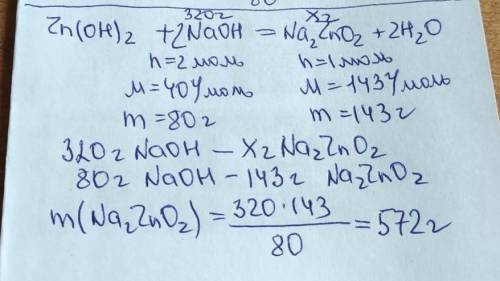 320г x г
Zn(OH)₂ + 2NaOH = Na₂ZnO₂ + 2H₂O
n=2моль n=1моль
M=40г/моль M=143г/моль
m=80г m=143г
320г NaOH – Xг Na₂ZnO₂
80г NaOH – 143г Na₂ZnO₂
m(Na₂ZnO₂) = 320·143 / 80 = 572г